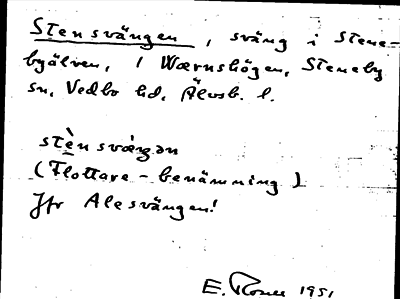 Stensvängen, sväng i Stene-
byälven, i Wærnshögen, Steneby
sn, Vedbo hd, Älvsb. l.
stὲn svæŋən
(Flottare-benämning)
Jfr Alesvängen!
E. 1951